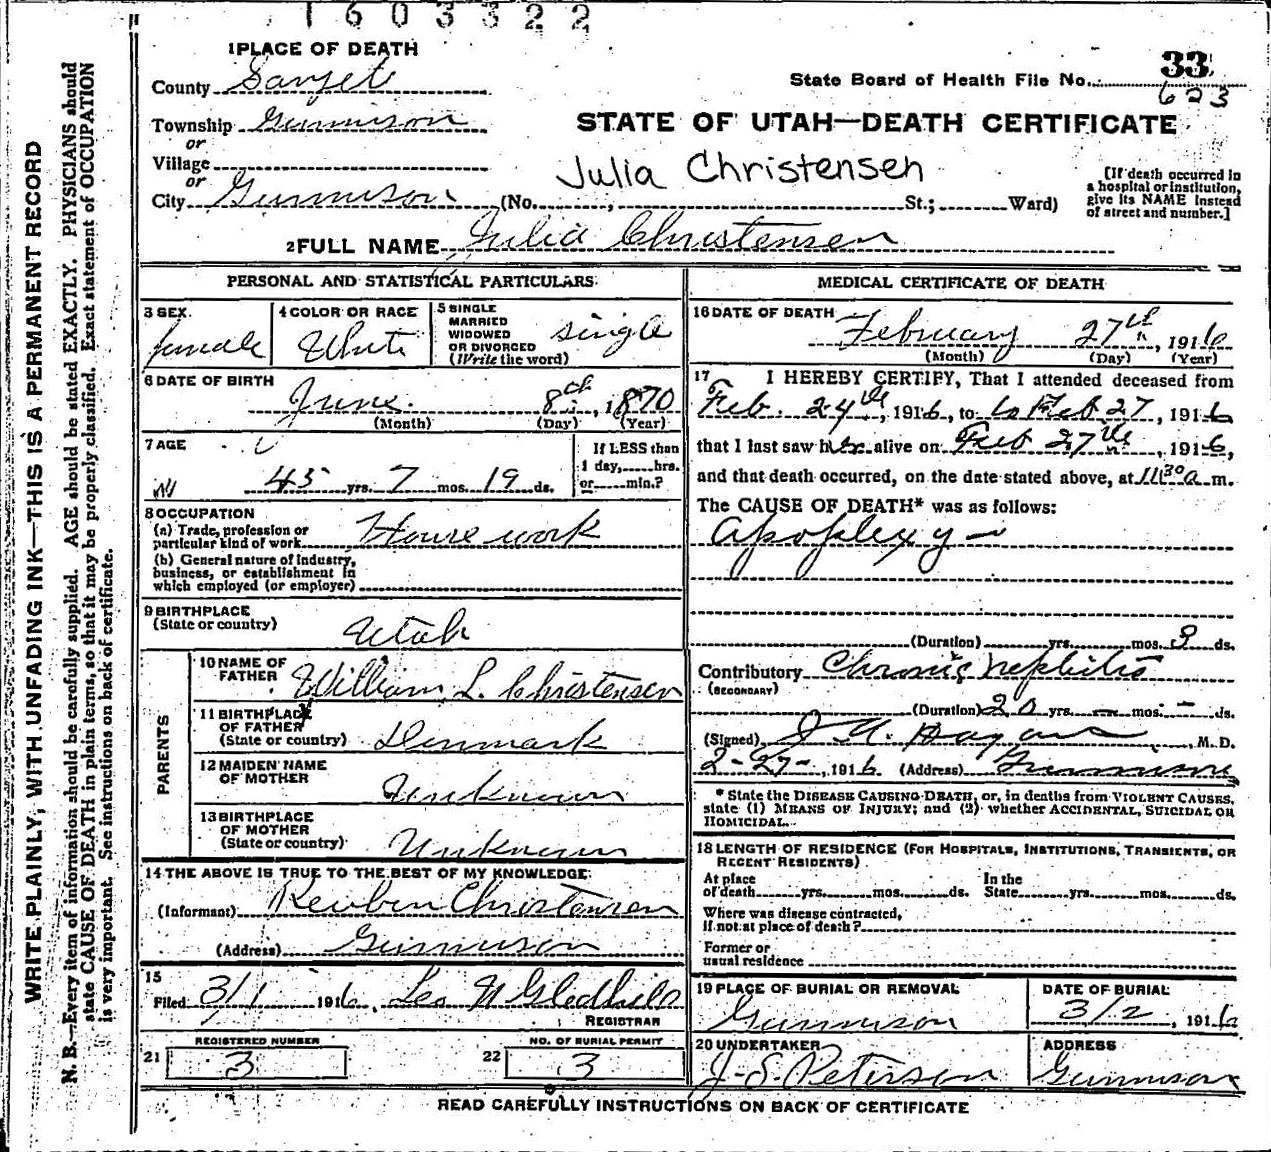 1603322
1 PLACE OF DEATH
33
County Sanpete
State Board of Health File No. 623
Township Gunnison
STATE OF UTAH—DEATH CERTIFICATE
or
Village
or
Julia Christensen
[If death occurred in
a hospital or institution,
give its NAME instead
of street and number.]
City Gunnison (No. , St.; Ward)
2 FULL NAME Julia Christensen
PERSONAL AND STATISTICAL PARTICULARS.
3 SEX. female
4 COLOR OR RACE White
5 SINGLE
MARRIED
WIDOWED
OR DIVORCED
(Write the word) single
6 DATE OF BIRTH
June 8th, 1870
(Month) (Day) (Year)
7 AGE
45 yrs. 7 mos. 19 ds.
If LESS than
1 day, hrs.
or min.?
8 OCCUPATION
(a) Trade, profession or
particular kind of work House work
(b) General nature of Industry,
business, or establishment in
which employed (or employer)
9 BIRTHPLACE
(State or country) Utah
PARENTS
10 NAME OF
FATHER William L. Christensen
11 BIRTHPLACE
OF FATHER
(State or country) Denmark
12 MAIDEN NAME
OF MOTHER Unknown
13 BIRTHPLACE
OF MOTHER
(State or country) Unknown
14 THE ABOVE IS TRUE TO THE BEST OF MY KNOWLEDGE
(Informant) Reuben Christensen
(Address) Gunnison
15
Filed 3/1 1916 Leo N Gledhill
REGISTRAR
21 REGISTERED NUMBER 3
22 NO. OF BURIAL PERMIT 3
MEDICAL CERTIFICATE OF DEATH
16 DATE OF DEATH
February 27th, 1916
(Month) (Day) (Year)
17 I HEREBY CERTIFY, That I attended deceased from
Feb. 24th, 1916, to Feb 27, 1916
that I last saw her alive on Feb 27th, 1916,
and that death occurred, on the date stated above, at 11 30 a m.
The CAUSE OF DEATH* was as follows:
Apoplexy
(Duration) yrs. mos. 3 ds.
Contributory Chronic Nephritis
(SECONDARY)
(Duration) 20 yrs. — mos. — ds.
(Signed) M. D.
2-27-, 1916 (Address) Gunnison
* State the DISEASE CAUSING DEATH, or, in deaths from VIOLENT CAUSES,
state (1) MEANS OF INJURY; and (2) whether ACCIDENTAL, SUICIDAL OR
HOMICIDAL.
18 LENGTH OF RESIDENCE (FOR HOSPITALS, INSTITUTIONS, TRANSIENTS, OR
RECENT RESIDENTS)
At place
of death yrs. mos. ds.
In the
State yrs. mos. ds.
Where was disease contracted,
if not at place of death?
Former or
usual residence
19 PLACE OF BURIAL OR REMOVAL
Gunnison
DATE OF BURIAL
3/2, 1916
20 UNDERTAKER
J. S. Peterson
ADDRESS
Gunnison
READ CAREFULLY INSTRUCTIONS ON BACK OF CERTIFICATE
WRITE PLAINLY, WITH UNFADING INK—THIS IS A PERMANENT RECORD
N. B.—Every item of information should be carefully supplied. AGE should be stated EXACTLY. PHYSICIANS should
state CAUSE OF DEATH in plain terms, so that it may be properly classified. Exact statement of OCCUPATION
is very important. See instructions on back of certificate.